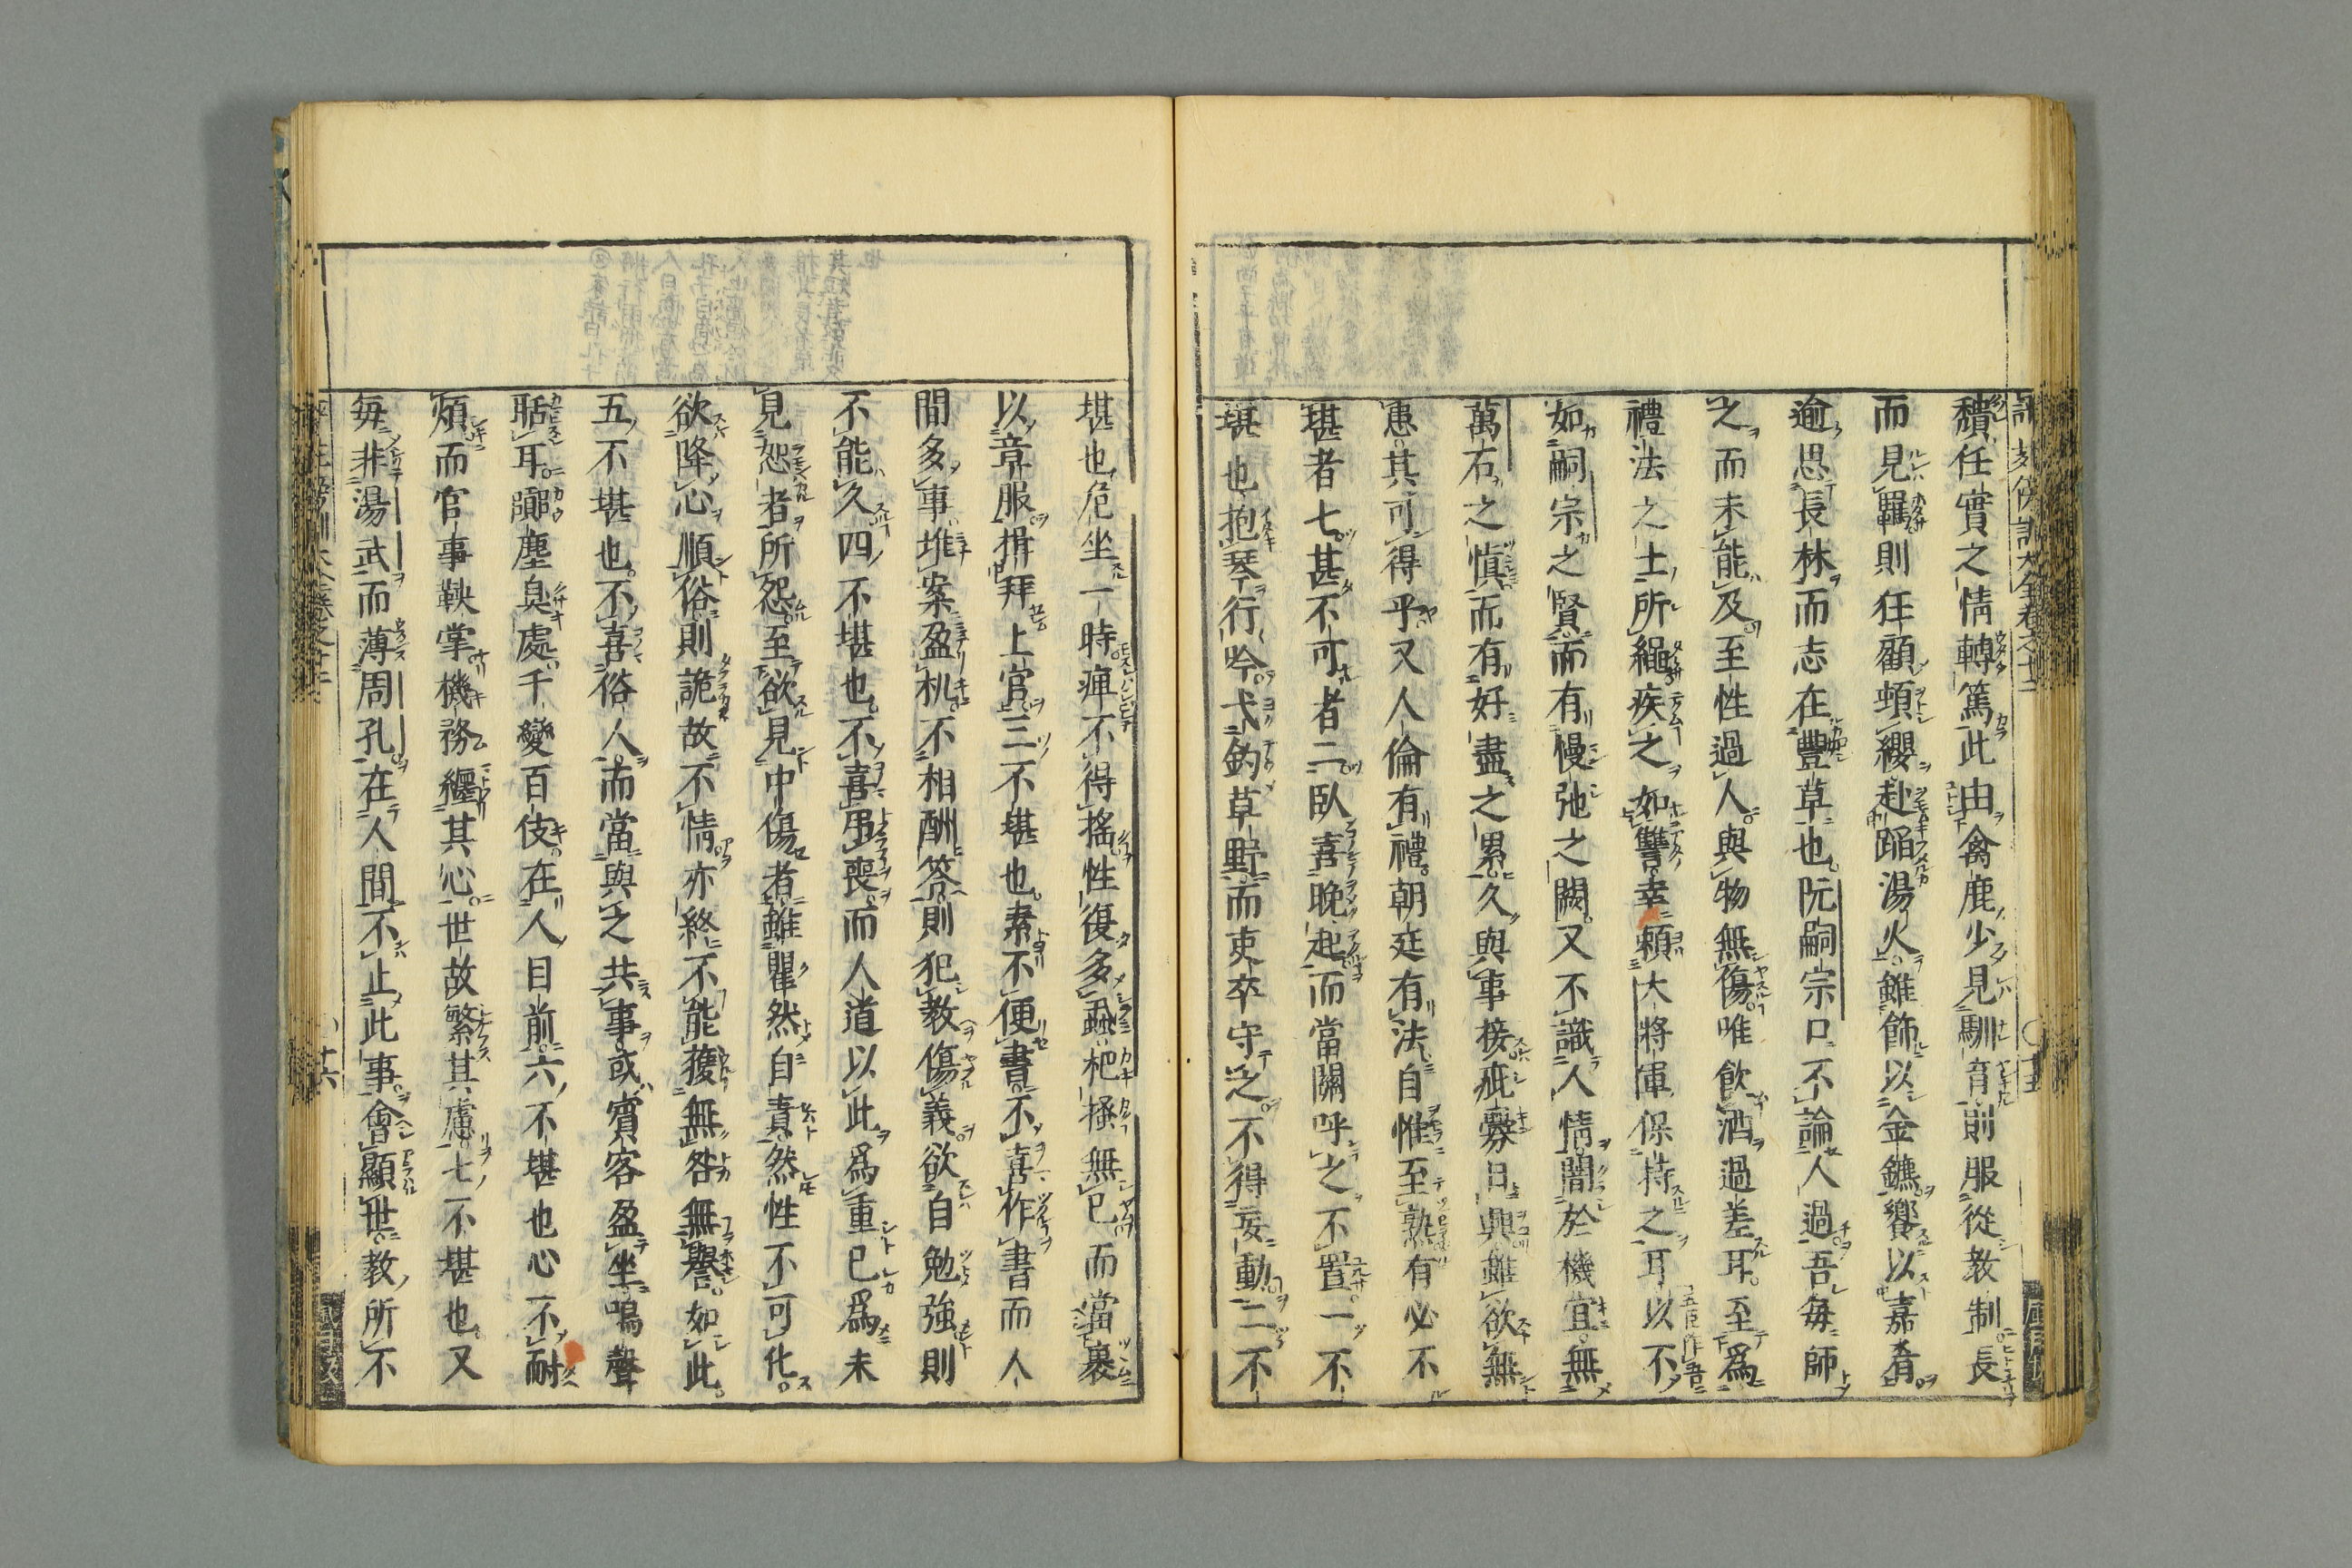 穨任實之情轉篤此由禽鹿少見馴育則服從教制長
而見羈則狂顧頓纓赴蹈湯火雖飾以金鑣饗以嘉肴
逾思長林而志在豐草也阮嗣宗口不論人過吾毎師
之而未能及至性過人與物無傷唯飲酒過差耳至爲
禮法之士所繩疾之如讐幸頼大將軍保持之耳以不
如嗣宗之賢而有慢弛之闕又不識人情闇於機宜無
萬石之愼而有好盡之累久與事接疵釁日興雖欲無
患其可得乎又人倫有禮朝廷有法自惟至熟有必不
堪者七甚不可者二臥喜晩起而當關呼之不置一不
堪也抱琴行吟弋釣草野而吏卒守之不得妄動二不
堪也危坐一時痺不得搖性復多蝨杷搔無已而當裹
以章服揖拜上官三不堪也素不便書不喜作書而人
間多事堆案盈机不相酬答則犯教傷義欲自勉強則
不能久四不堪也不喜弔喪而人道以此爲重已爲未
見恕者所怨至欲見中傷者雖瞿然自責然性不可化
欲降心順俗則詭故不情亦終不能獲無咎無譽如此
五不堪也不喜俗人而當與之共事或賓客盈坐鳴聲
聒耳囂塵臭處千變百伎在人目前六不堪也心不耐
煩而官事鞅掌機務纒其心世故繁其慮七不堪也又
毎非湯武而薄周孔在人間不止此事會顯世教所不